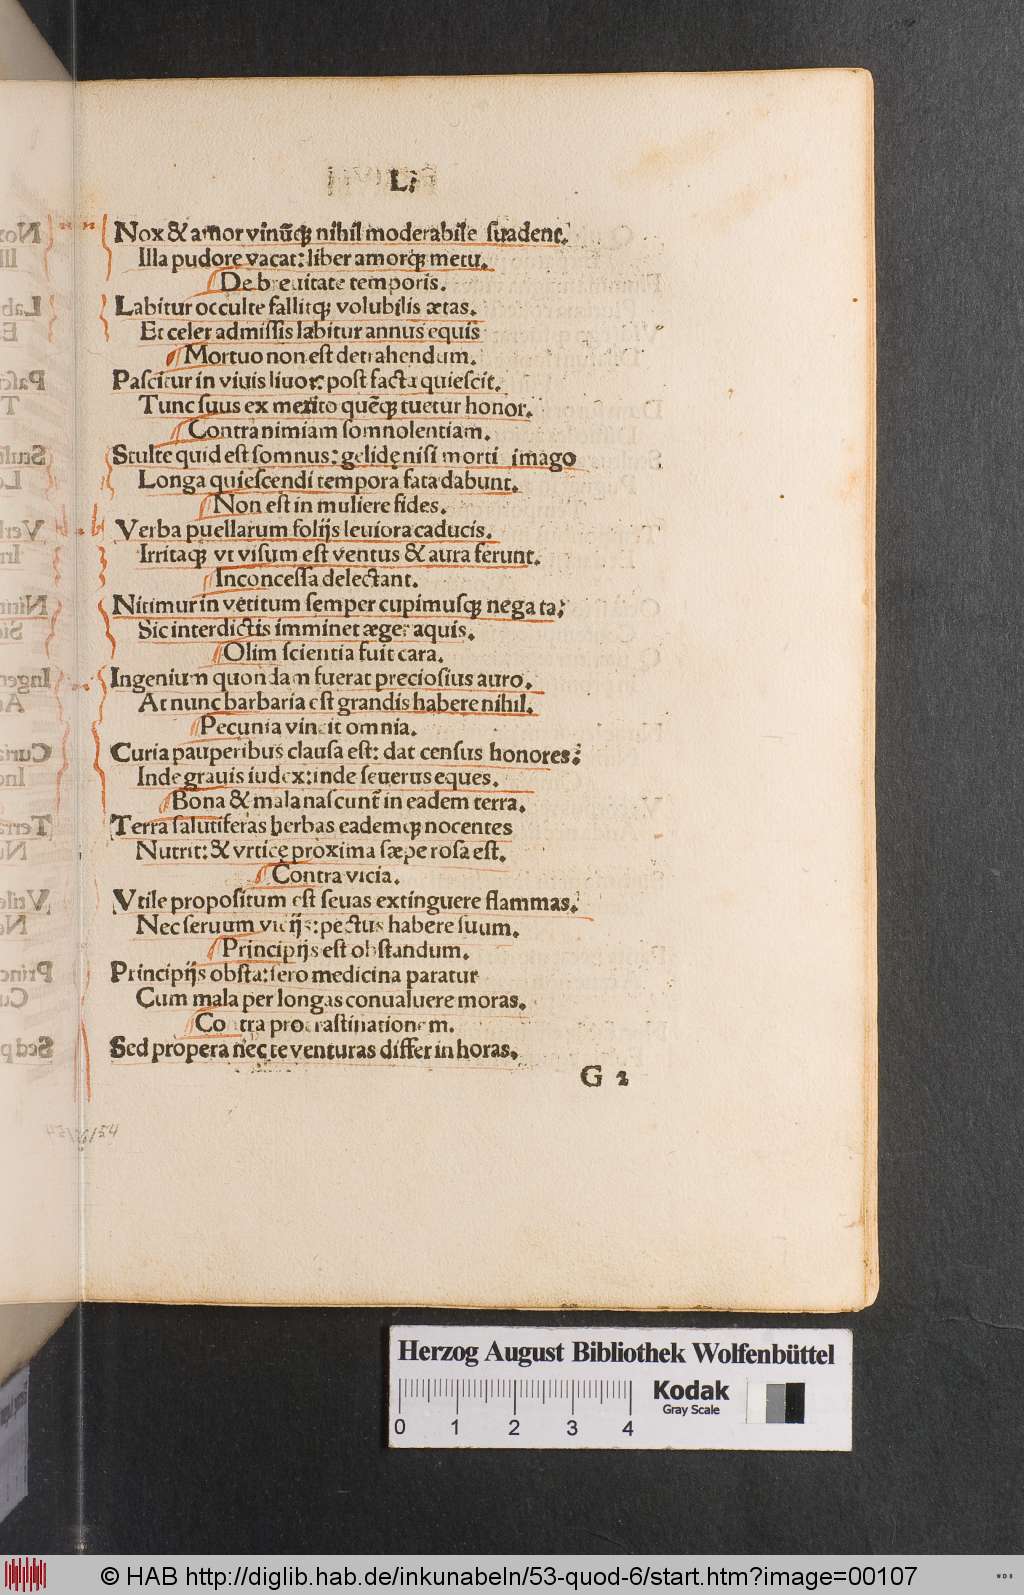 L.
Nox & amor vinūq; nihil moderabile suadent.
Illa pudore vacat: liber amorq; metu.
De breuitate temporis.
Labitur occulte fallitq; volubilis ætas.
Et celer admissis labitur annus equis
Mortuo non est detrahendum.
Pascitur in viuis liuor: post facta quiescit.
Tunc suus ex merito quēq; tuetur honor.
Contra nimiam somnolentiam.
Stulte quid est somnus: gelidę nisi morti imago
Longa quiescendi tempora fata dabunt.
Non est in muliere fides.
Verba puellarum folijs leuiora caducis.
Irritaq; vt visum est ventus & aura ferunt.
Inconcessa delectant.
Nitimur in vetitum semper cupimusq; negata;
Sic interdictis imminet æger aquis.
Olim scientia fuit cara.
Ingenium quondam fuerat preciosius auro.
At nunc barbaria est grandis habere nihil.
Pecunia vincit omnia.
Curia pauperibus clausa est: dat census honores;
Inde grauis iudex: inde seuerus eques.
Bona & mala nascunt̄ in eadem terra.
Terra salutiferas herbas eademq; nocentes
Nutrit: & vrticę proxima sæpe rosa est.
Contra vicia.
Vtile propositum est seuas extinguere flammas.
Nec seruum vicijs: pectus habere suum.
Principijs est obstandum.
Principijs obsta: sero medicina paratur
Cum mala per longas conualuere moras.
Contra procrastinationem.
Sed propera nec te venturas differ in horas.
G 2
Herzog August Bibliothek Wolfenbüttel
Kodak
Gray Scale
0 1 2 3 4
© HAB http://diglib.hab.de/inkunabeln/53-quod-6/start.htm?image=00107